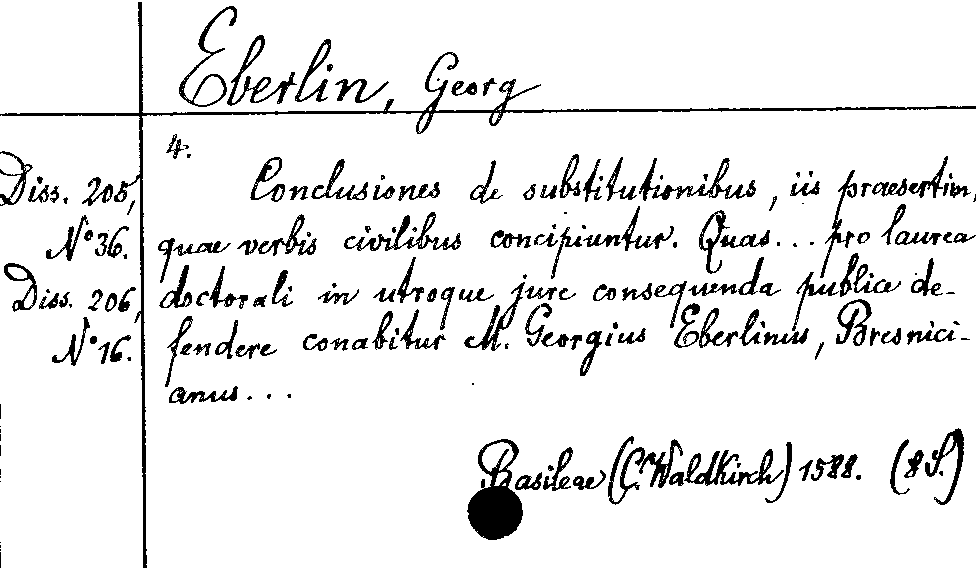 Eberlin, Georg
4.
Diss. 205,
N° 36.
Diss. 206,
N° 16.
Conclusiones de substitutionibus, iis praesertim,
quae verbis civilibus concipiuntur. Quas... pro laurea
doctorali in utroque jure consequenda publice de-
fendere conabitur M. Georgius Eberlinus, Bresnici-
anus...
Basileae (C. Waldkirch) 1588. (8 S.)